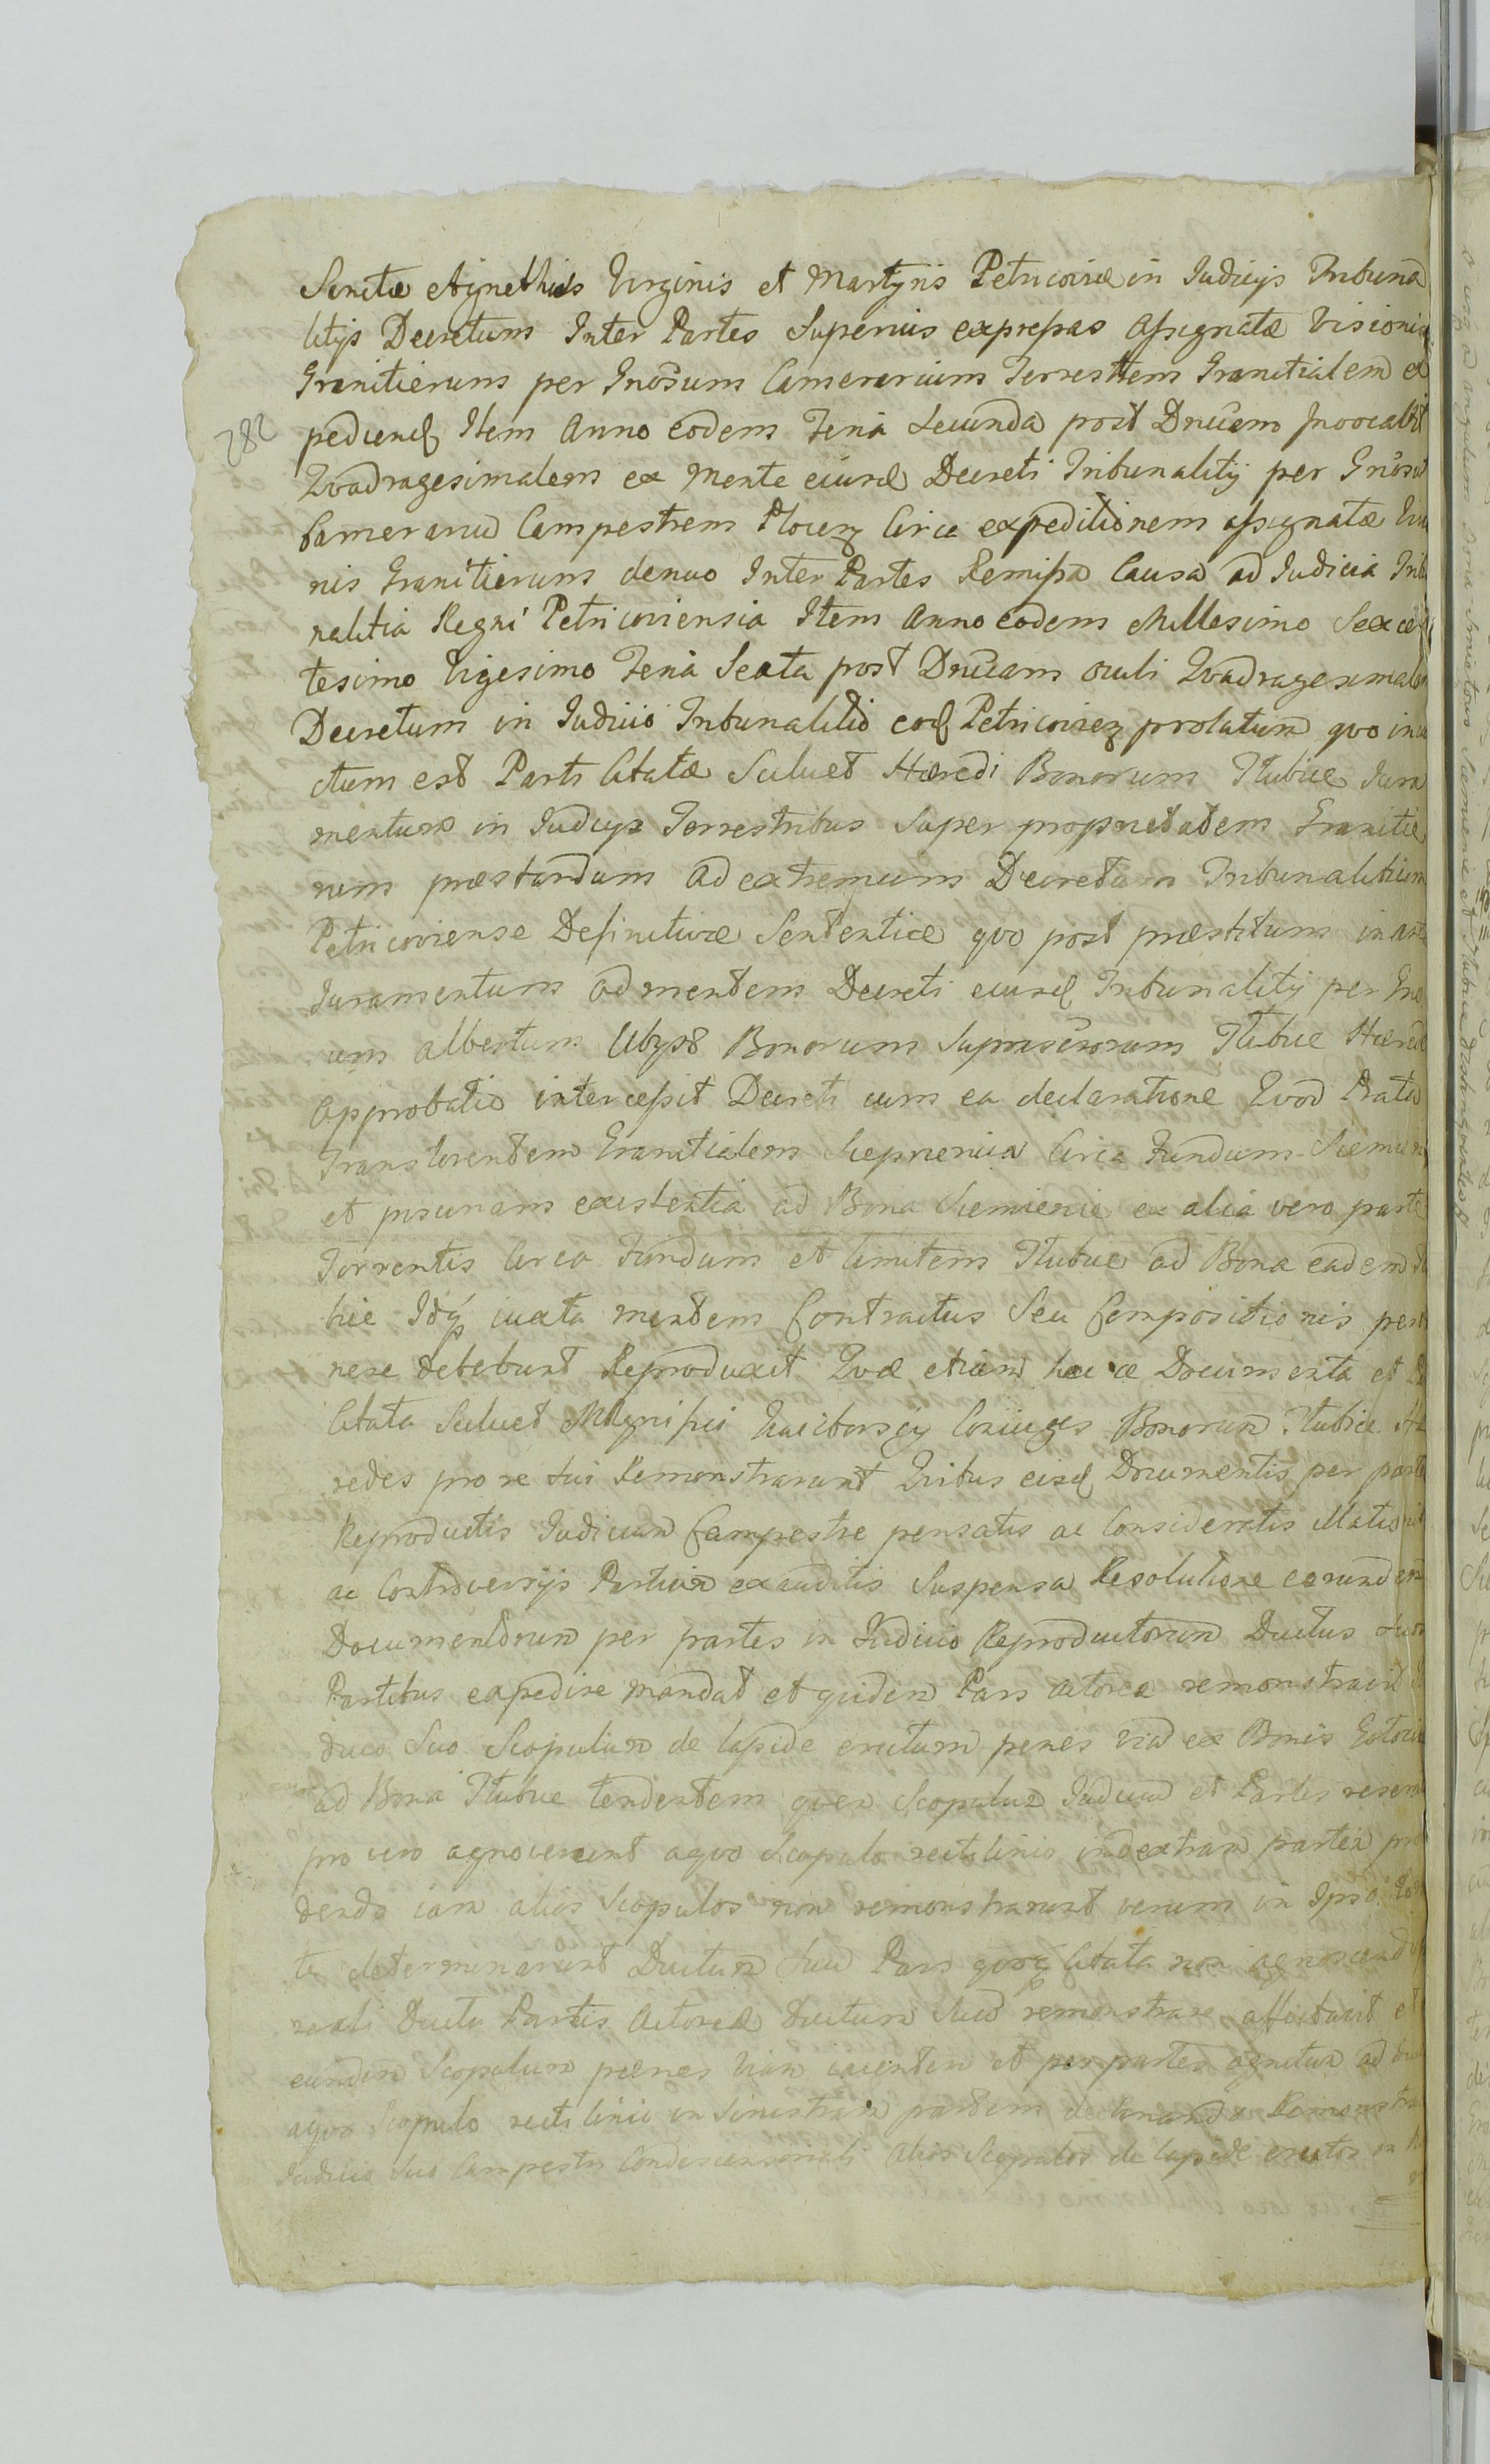 Sanctæ Agnethis Virginis et Martyris Petricoviæ in Iudicijs Tribuna
litijs Decretum Inter Partes Superius expressas Assignatæ Visionis
Granitierum per Gnosum Camerarium Terrestrem Granitialem ex
282
pediend Item Anno eodem Feria Secunda post Dnicam Invocabit
Qvadragesimalem ex Mente eiusd Decreti Tribunalitij per Gnosu
Camerariu Campestrem Plocen Circa expeditionem assignatæ
nis Granitierum denuo Inter Partes Remissa Causa ad Iudicia Trib
nalitia Regni Petricoviensia Item Anno eodem Millesimo Sexce
tesimo Vigesimo Feria Sexta post Dnicam Oculi Qvadragesimalem
Decretum in Iudicio Tribunalitio eod Petricovien prolatum qvo in
ctum est Parti Citatæ Scilicet Hæredi Bonorum Tłubice Iura
mentum in Iudicijs Terrestribus Super proprietatem Granitie
rum præstandum ad extremum Decretum Tribunalitium
Petricoviense Definitivæ Sententiæ qvo post præstitum
Iuramentum ad mentem Decreti eiusd Tribunalitij per Gne
um Albertum Bonorum Supra Tłubice Hæred
approbatio intercessit Decreti cum ea declaratione Qvod Prata
Trans torrentem Granitialem Siepienica Circa Fundum
et existentia ad Bona Siemienie ex alia vero parte
Torrentis Circa Fundum et limitem Tłubice ad Bona eadem
bice Idq iuxta mentem Contractus Seu Compositionis perti
nere debebunt Reproduxit Qvæ etiam Documenta et
Citata Scilicet Magnifici Coniuges Bonorum Tłubice Hæ
redes pro re sui Remonstrarunt Qvibus eisd Documentis per partes
Reproductis Iudicium Campestre pensatis ac Consideratis
ac Controversijs Partium exauditis Suspensa Resolutione eorundem
Documentorum per partes in Iudicio Reproductorum Ductus
Partibus expedire mandat et qvidem Pars Actorea remonstravit
ductu Suo Scopulum de lapide erectum penes viam ex Bonis
ad Bona Tłubice tendentem qvem Scopulum Iudicium et Partes
pro vero agnoverunt aqvo Scopulo recta linia in dextram partem
dendo iam alios Scopulos non remonstrarunt verum in Ipso
te determinarunt Ductum Suu Pars qvoq Citata non agnoscendo
reali Ductu Partis Actoreæ Ductum Suu remonstrare affectavit et
eundem Scopulum pænes viam iacentem et per partes agnitum ad
aqvo Scopulo recta linia in Sinistram partem declinando Remonstra
Iudicio Suo Campestri Condescensoriali alios Scopulos de lapide erectos in